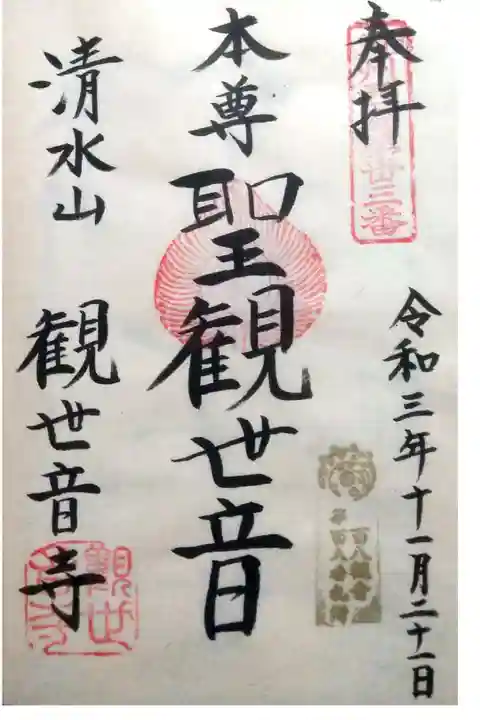 奉拝
令和三年十一月二十一日
本尊
聖観世音
清水山
観世音寺